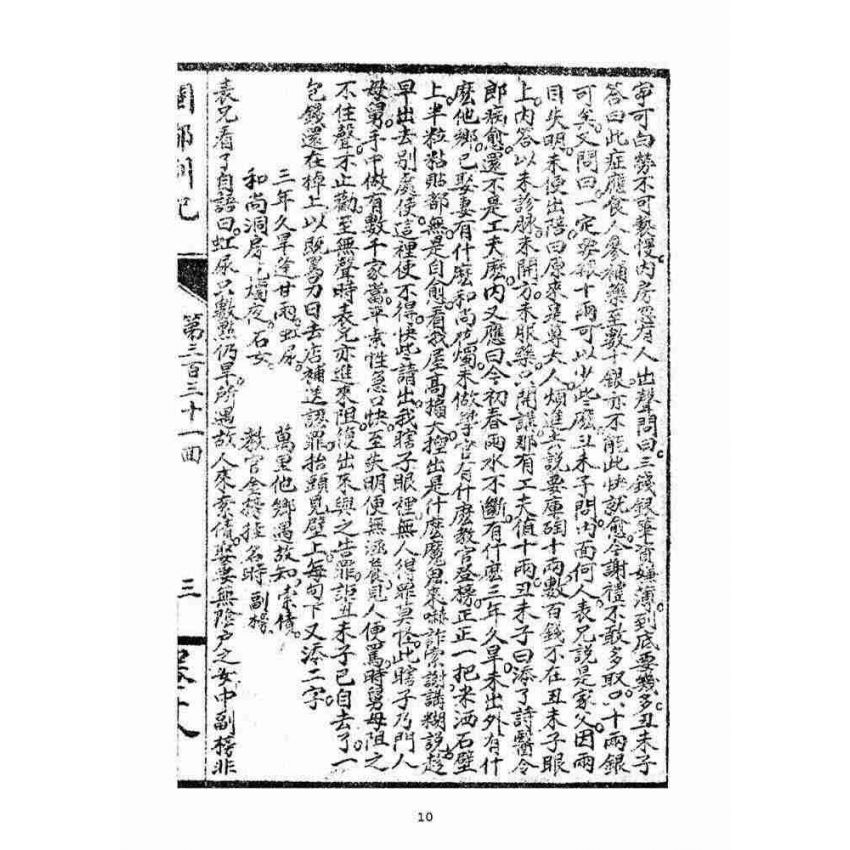 寧可白勞不可褻慢內房忽有人出聲問曰三錢銀筆資嫌薄到底要幾多丑未子
答曰此症應食人參補藥至數十銀亦不能此快就愈今謝禮不敢多取只十兩銀
可矣又問曰一定要銀十兩可以少些麼丑未子問內面何人表兄說是家父因兩
目失明未便出陪曰原來是尊大人煩進去說要庫砠十兩數百錢不在丑未子眼
上內答以未診脉未開方未服藥只開讀那有工夫值十兩丑未子曰添了詩醫令
郎病愈還不是工夫麼內又應曰今初春雨水不斷有什麼三年久旱未出外有什
麼他鄉已娶妻有什麼和尚花燭未做學官有什麼教官登榜正正一把米洒石壁
上半粒黏貼都無是自愈看我屋高擴大控出是什麼魔鬼來嚇詐索謝講糊說趁
早出去別處使這裡使不得快些請出我瞎子眼裡無人得罪莫怪此瞎子乃門人
母舅手中做有數千家當平素性急口快至失明便無涵養見人便罵時舅母阻之
不住聲不止勸至無聲時表兄亦進來阻復出來與之告罪詎丑未子已自去了一
包錢還在棹上以既罵刀曰去店補送認罪抬頭見壁上每句下又添二字
三年久旱逢甘雨虹尿 萬里他鄉遇故知索債
和尚洞房花燭夜石女 教官金榜掛名時副榜
表兄看了自語曰虹尿只數點仍旱所遇故人來索債娶妻無陰戶之女中副榜非
第三百三十一回
三